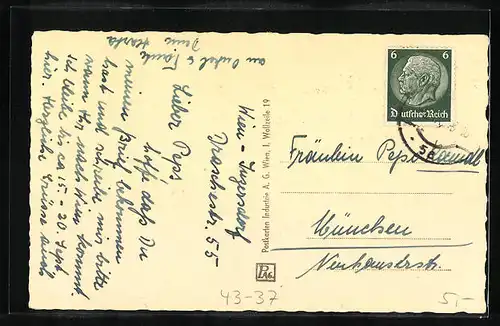 Wien - Inzersdorf
Draschestr. 55
Lieber Pepi
hoffe daß Du
meinen Brief bekommen
hast und schreibe mir bitte
wann Ihr nach Wien kommt
Ich bleibe bis ca. 15 - 20. Sept.
hier. Herzliche Grüsse auch
an Onkel & Tante
Deine Herta
Postkarten Industrie A. G. Wien, I. Wollzeile 19
PAG
6 6
Deutsches Reich
56
Fräulein Pepi
München
Neuhauserstr.
43-37
5,-